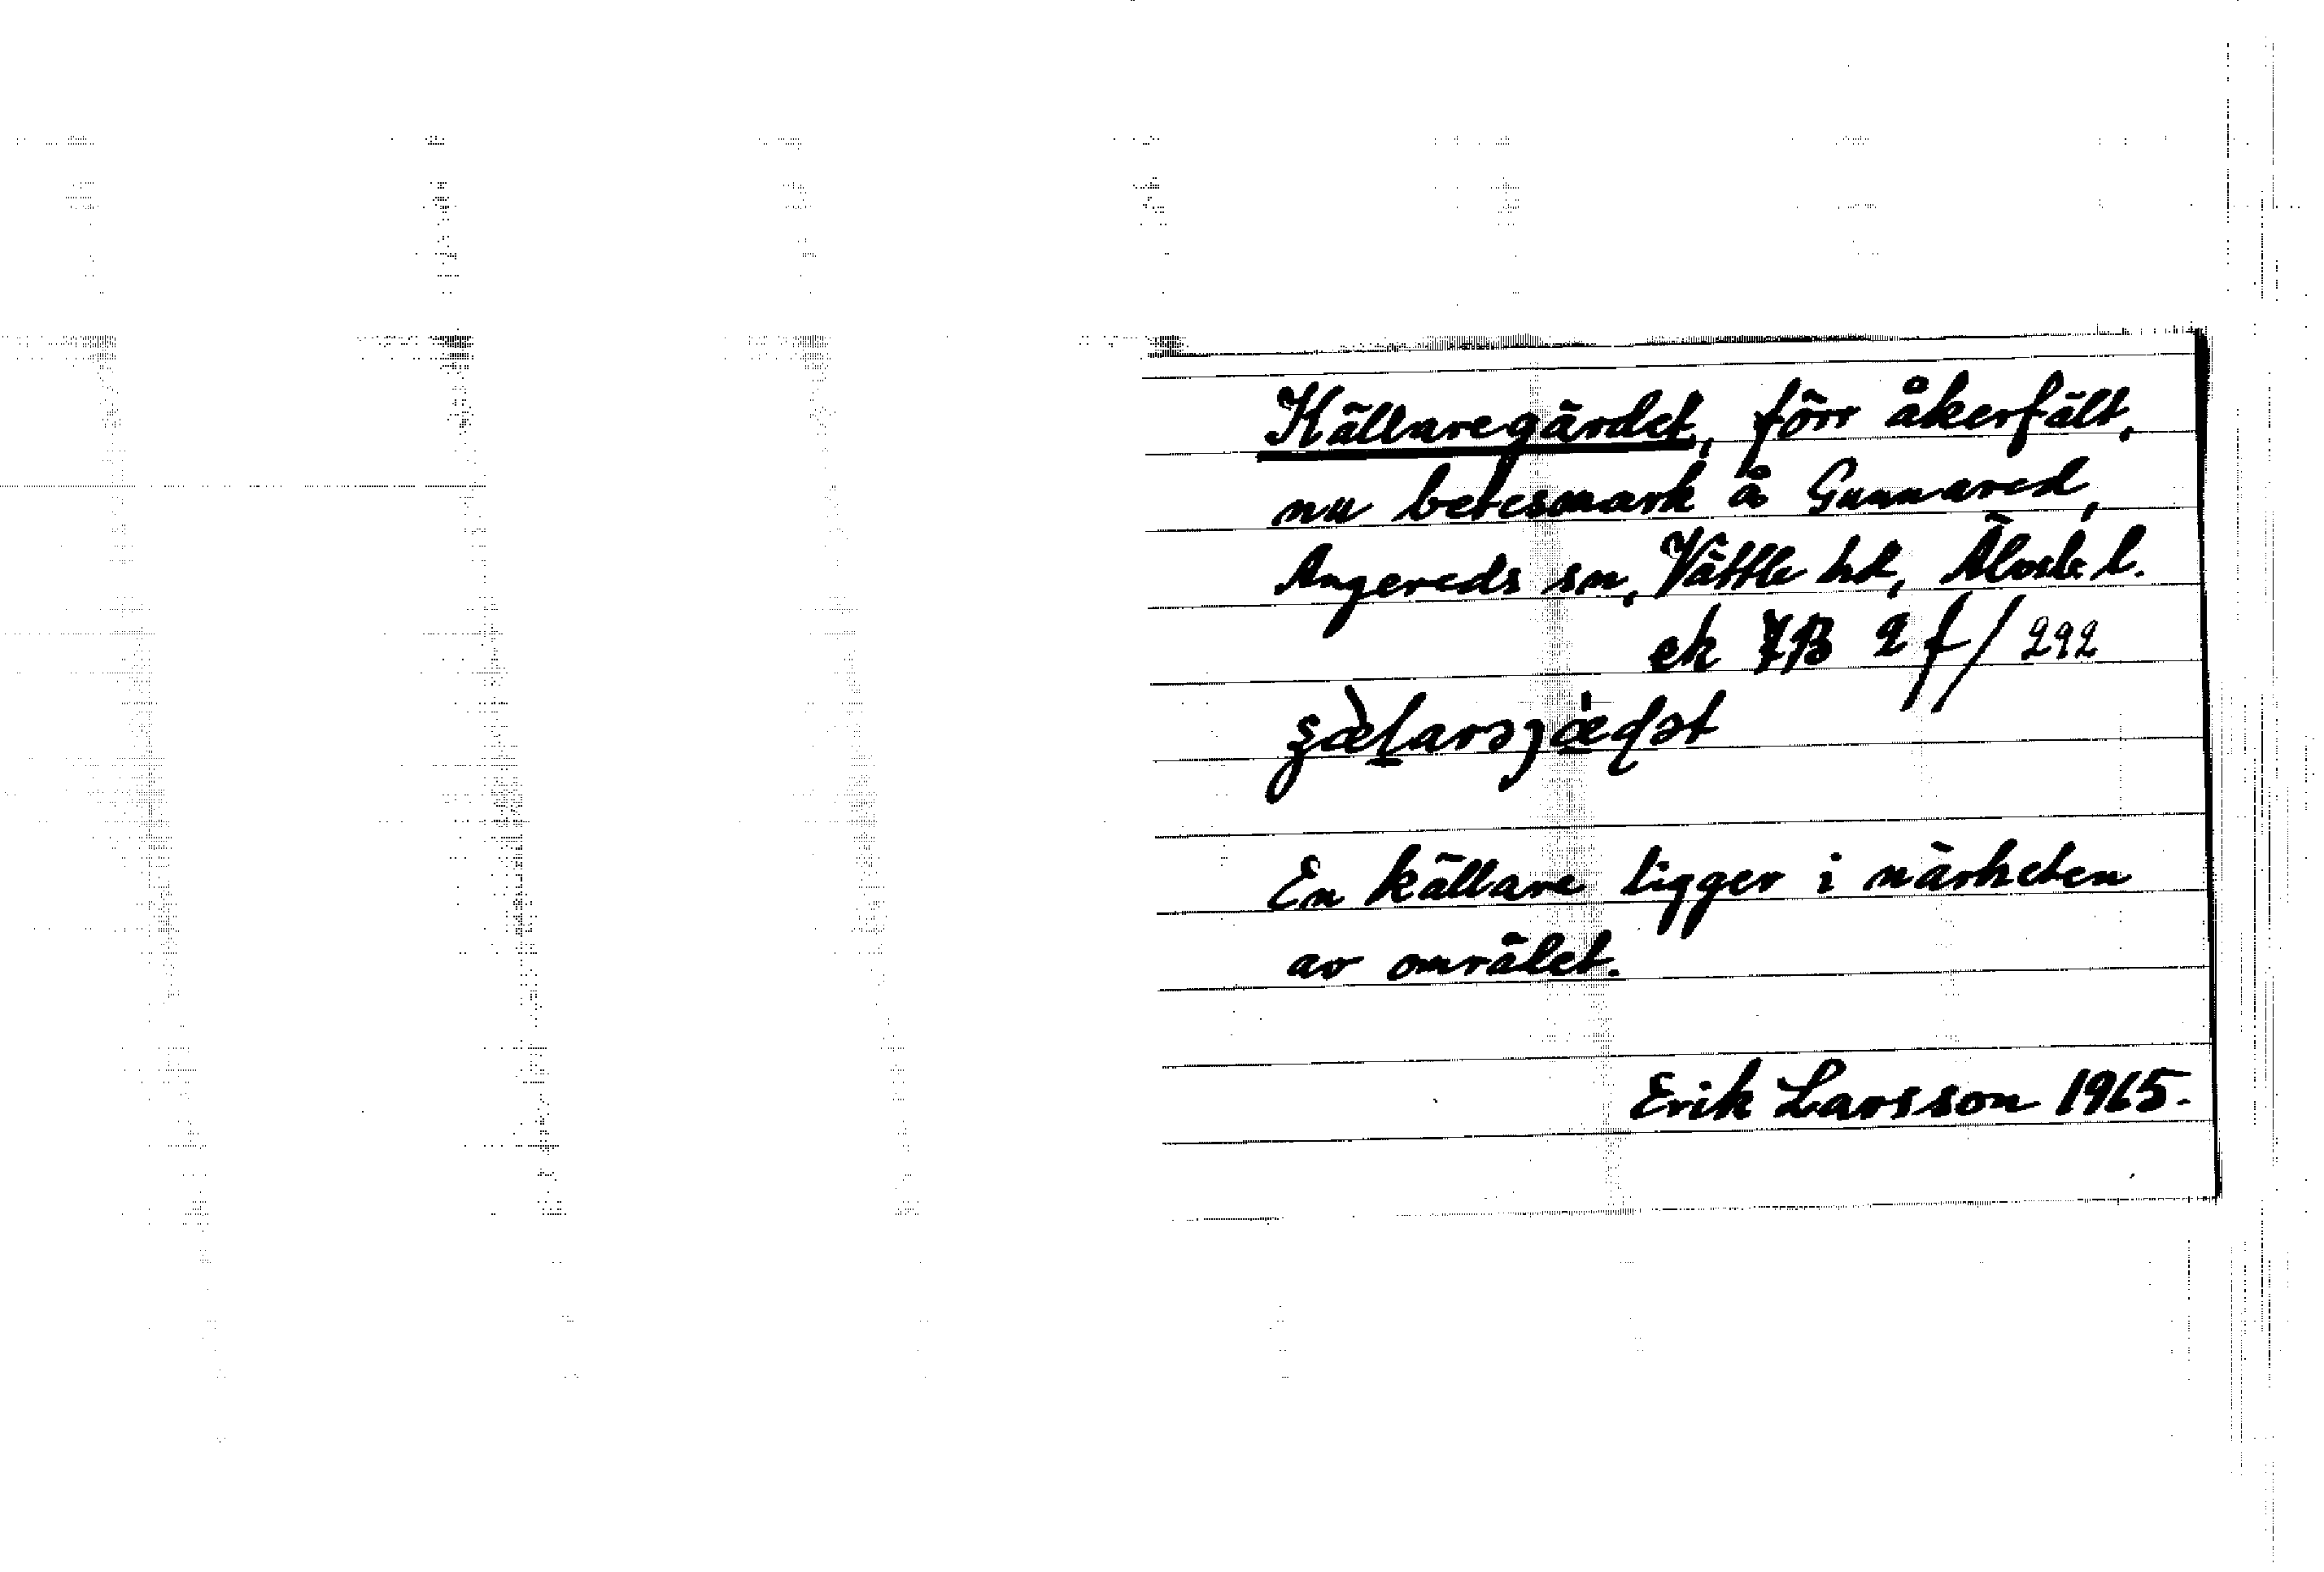 Källaregärdet, förr åkerfält,
nu betesmark å Gunnared,
Angereds sn, Vättle hd, Älvsb. l.
ek 7B 2 f/292
En källare ligger i närheten
av området.
Erik Larsson 1965.